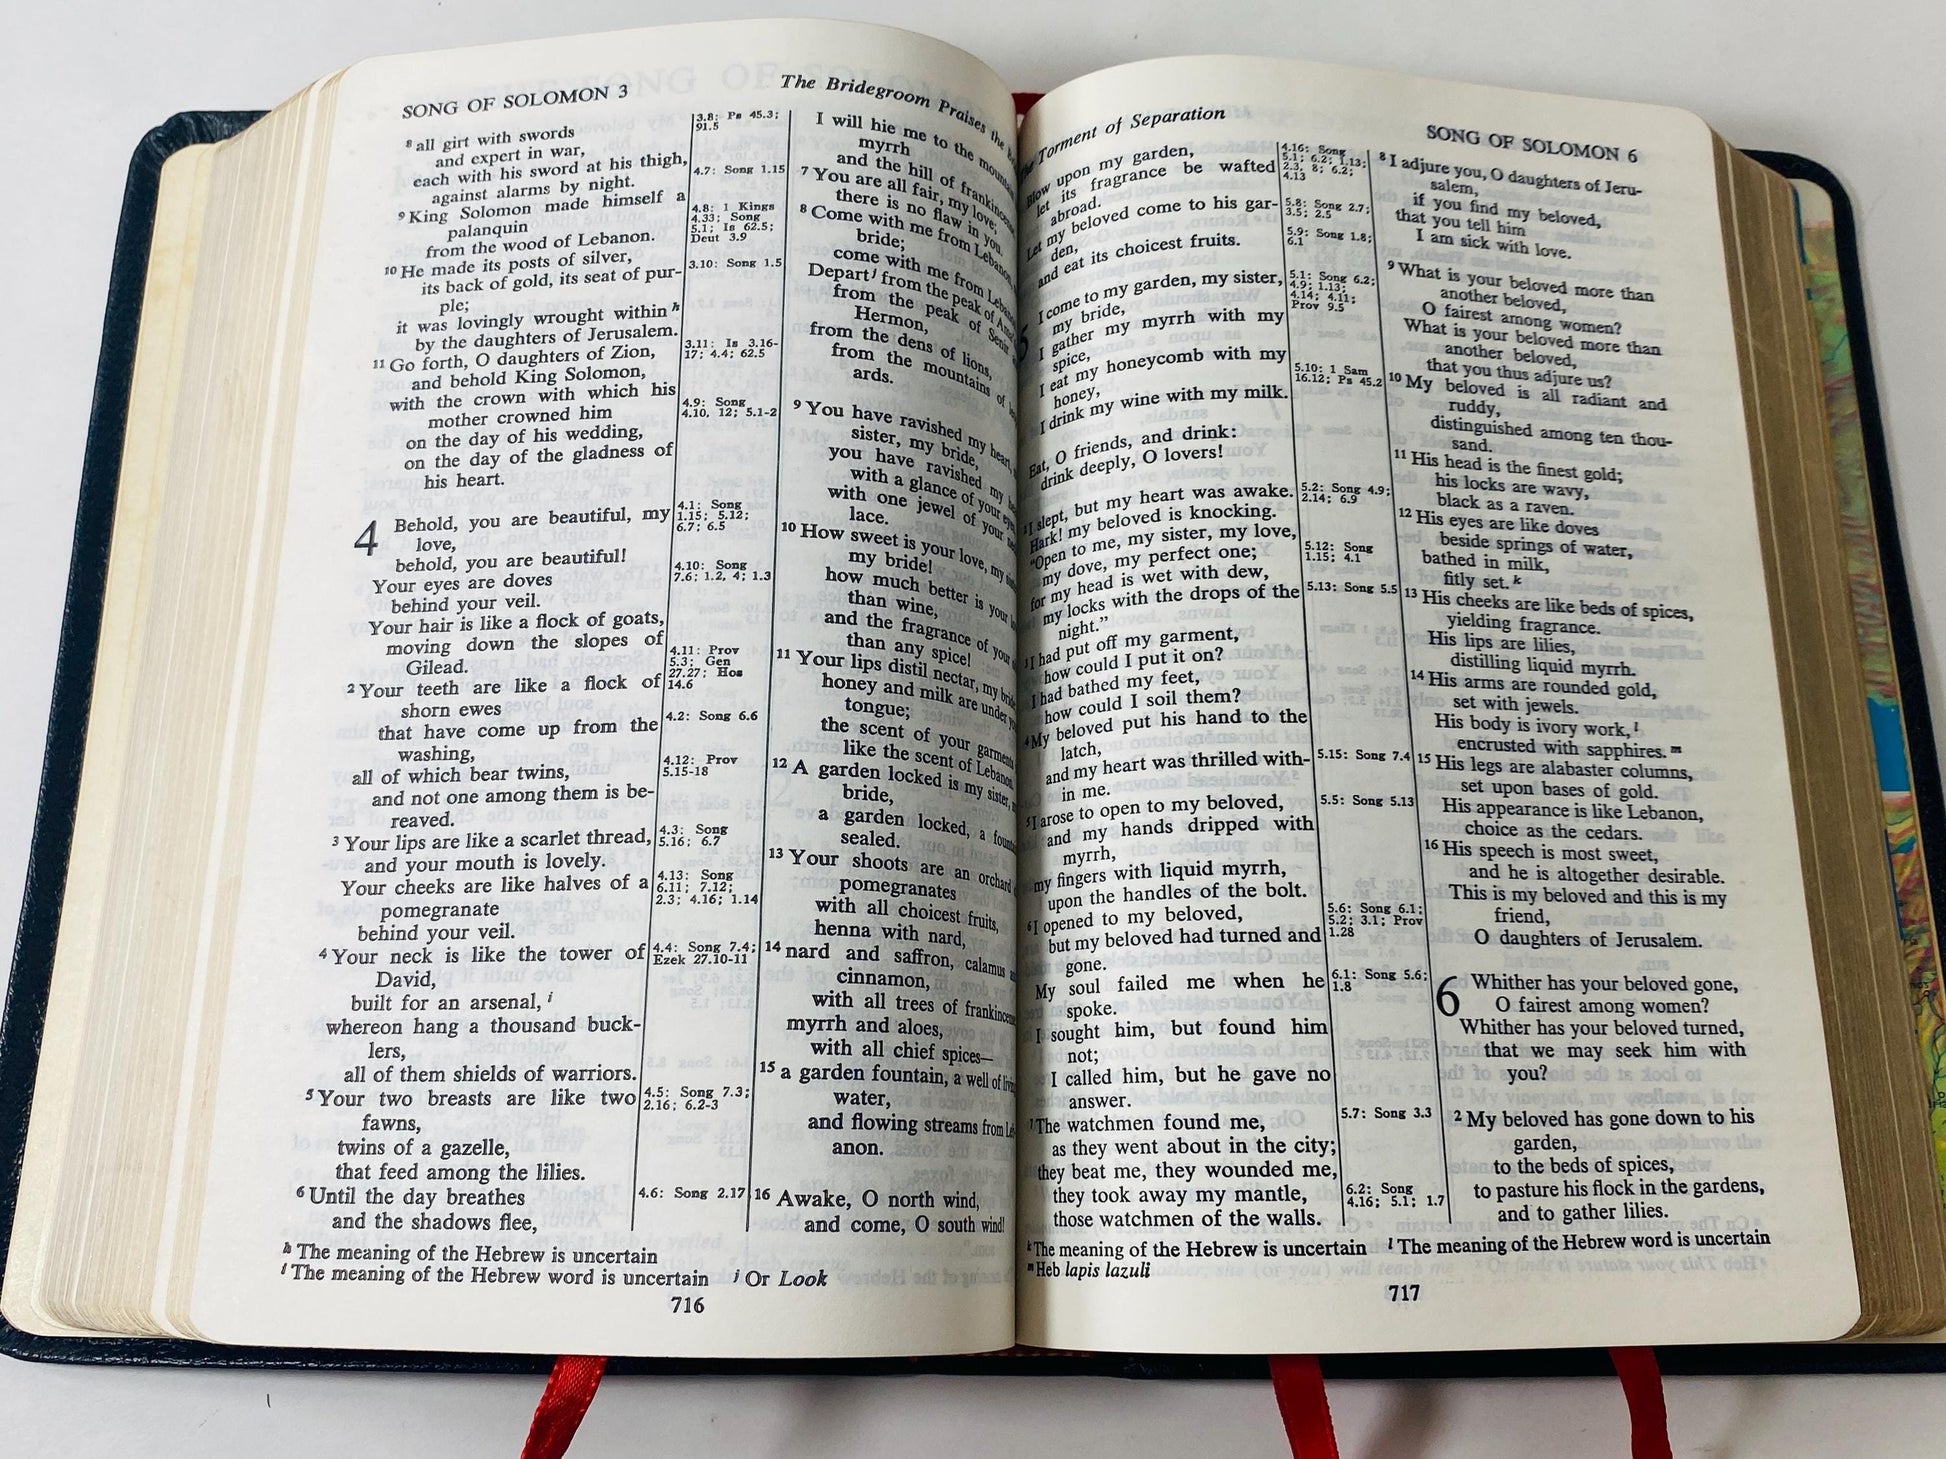 SONG OF SOLOMON 3
The Bridegroom Praises the
8 all girt with swords
and expert in war,
each with his sword at his thigh,
against alarms by night.
9 King Solomon made himself a
palanquin
from the wood of Lebanon.
10 He made its posts of silver,
its back of gold, its seat of pur-
ple;
it was lovingly wrought within h
by the daughters of Jerusalem.
11 Go forth, O daughters of Zion,
and behold King Solomon,
with the crown with which his
mother crowned him
on the day of his wedding,
on the day of the gladness of
his heart.
4 Behold, you are beautiful, my
love,
behold, you are beautiful!
Your eyes are doves
behind your veil.
Your hair is like a flock of goats,
moving down the slopes of
Gilead.
2 Your teeth are like a flock of
shorn ewes
that have come up from the
washing,
all of which bear twins,
and not one among them is be-
reaved.
3 Your lips are like a scarlet thread,
and your mouth is lovely.
Your cheeks are like halves of a
pomegranate
behind your veil.
4 Your neck is like the tower of
David,
built for an arsenal, i
whereon hang a thousand buck-
lers,
all of them shields of warriors.
5 Your two breasts are like two
fawns,
twins of a gazelle,
that feed among the lilies.
6 Until the day breathes
and the shadows flee,
3.8: Ps 45.3;
91.5
4.7: Song 1.15
4.8: 1 Kings
4.33; Song
5.1; Is 62.5;
Deut 3.9
3.10: Song 1.5
3.11: Is 3.16-
17; 4.4; 62.5
4.9: Song
4.10, 12; 5.1-2
4.1: Song
1.15; 5.12;
6.7; 6.5
4.10: Song
7.6; 1.2, 4; 1.3
4.11: Prov
5.3; Gen
27.27; Hos
14.6
4.2: Song 6.6
4.12: Prov
5.15-18
4.3: Song
5.16; 6.7
4.13: Song
6.11; 7.12;
2.3; 4.16; 1.14
4.4: Song 7.4;
Ezek 27.10-11
4.5: Song 7.3;
2.16; 6.2-3
4.6: Song 2.17
I will hie me to the
myrrh
and the hill of
7 You are all fair, my love;
there is no flaw in you.
8 Come with me from
bride;
come with me from
Depart j from the peak of
from the peak of Senir
Hermon,
from the dens of lions,
from the mountains of
ards.
9 You have ravished my heart,
sister, my bride,
you have ravished my
with a glance of your
with one jewel of your
lace.
10 How sweet is your love, my
my bride!
how much better is your
than wine,
and the fragrance of your
than any spice!
11 Your lips distil nectar, my
honey and milk are under
tongue;
the scent of your
like the scent of
12 A garden locked is my sister,
bride,
a garden locked, a
sealed.
13 Your shoots are an orchard
pomegranates
with all choicest fruits,
henna with nard,
14 nard and saffron, calamus
cinnamon,
with all trees of
myrrh and aloes,
with all chief spices—
15 a garden fountain, a well of
water,
and flowing streams from
anon.
16 Awake, O north wind,
and come, O south wind!
h The meaning of the Hebrew is uncertain
i The meaning of the Hebrew word is uncertain j Or Look
716
Torment of Separation
SONG OF SOLOMON 6
Blow upon my garden,
let its fragrance be wafted
abroad.
Let my beloved come to his gar-
den,
and eat its choicest fruits.
5 I come to my garden, my sister,
my bride,
I gather my myrrh with my
spice,
I eat my honeycomb with my
honey,
I drink my wine with my milk.
Eat, O friends, and drink:
drink deeply, O lovers!
2 I slept, but my heart was awake.
Hark! my beloved is knocking.
"Open to me, my sister, my love,
my dove, my perfect one;
for my head is wet with dew,
my locks with the drops of the
night."
3 I had put off my garment,
how could I put it on?
I had bathed my feet,
how could I soil them?
4 My beloved put his hand to the
latch,
and my heart was thrilled with-
in me.
5 I arose to open to my beloved,
and my hands dripped with
myrrh,
my fingers with liquid myrrh,
upon the handles of the bolt.
6 I opened to my beloved,
but my beloved had turned and
gone.
My soul failed me when he
spoke.
I sought him, but found him
not;
I called him, but he gave no
answer.
7 The watchmen found me,
as they went about in the city;
they beat me, they wounded me,
they took away my mantle,
those watchmen of the walls.
4.16: Song
5.1; 6.2; 1.13;
2.3, 8; 6.2;
4.13
5.8: Song 2.7;
3.5; 2.5
5.9: Song 1.8;
6.1
5.1: Song 6.2;
4.9; 1.13;
4.14; 4.11;
Prov 9.5
5.10: 1 Sam
16.12; Ps 45.2
5.2: Song 4.9;
2.14; 6.9
5.12: Song
1.15; 4.1
5.13: Song 5.5
5.15: Song 7.4
5.5: Song 5.13
5.6: Song 6.1;
5.2; 3.1; Prov
1.28
6.1: Song 5.6;
1.8
5.7: Song 3.3
6.2: Song
4.16; 5.1; 1.7
8 I adjure you, O daughters of Jeru-
salem,
if you find my beloved,
that you tell him
I am sick with love.
9 What is your beloved more than
another beloved,
O fairest among women?
What is your beloved more than
another beloved,
that you thus adjure us?
10 My beloved is all radiant and
ruddy,
distinguished among ten thou-
sand.
11 His head is the finest gold;
his locks are wavy,
black as a raven.
12 His eyes are like doves
beside springs of water,
bathed in milk,
fitly set. k
13 His cheeks are like beds of spices,
yielding fragrance.
His lips are lilies,
distilling liquid myrrh.
14 His arms are rounded gold,
set with jewels.
His body is ivory work, l
encrusted with sapphires. m
15 His legs are alabaster columns,
set upon bases of gold.
His appearance is like Lebanon,
choice as the cedars.
16 His speech is most sweet,
and he is altogether desirable.
This is my beloved and this is my
friend,
O daughters of Jerusalem.
6 Whither has your beloved gone,
O fairest among women?
Whither has your beloved turned,
that we may seek him with
you?
2 My beloved has gone down to his
garden,
to the beds of spices,
to pasture his flock in the gardens,
and to gather lilies.
k The meaning of the Hebrew is uncertain l The meaning of the Hebrew word is uncertain
m Heb lapis lazuli
717